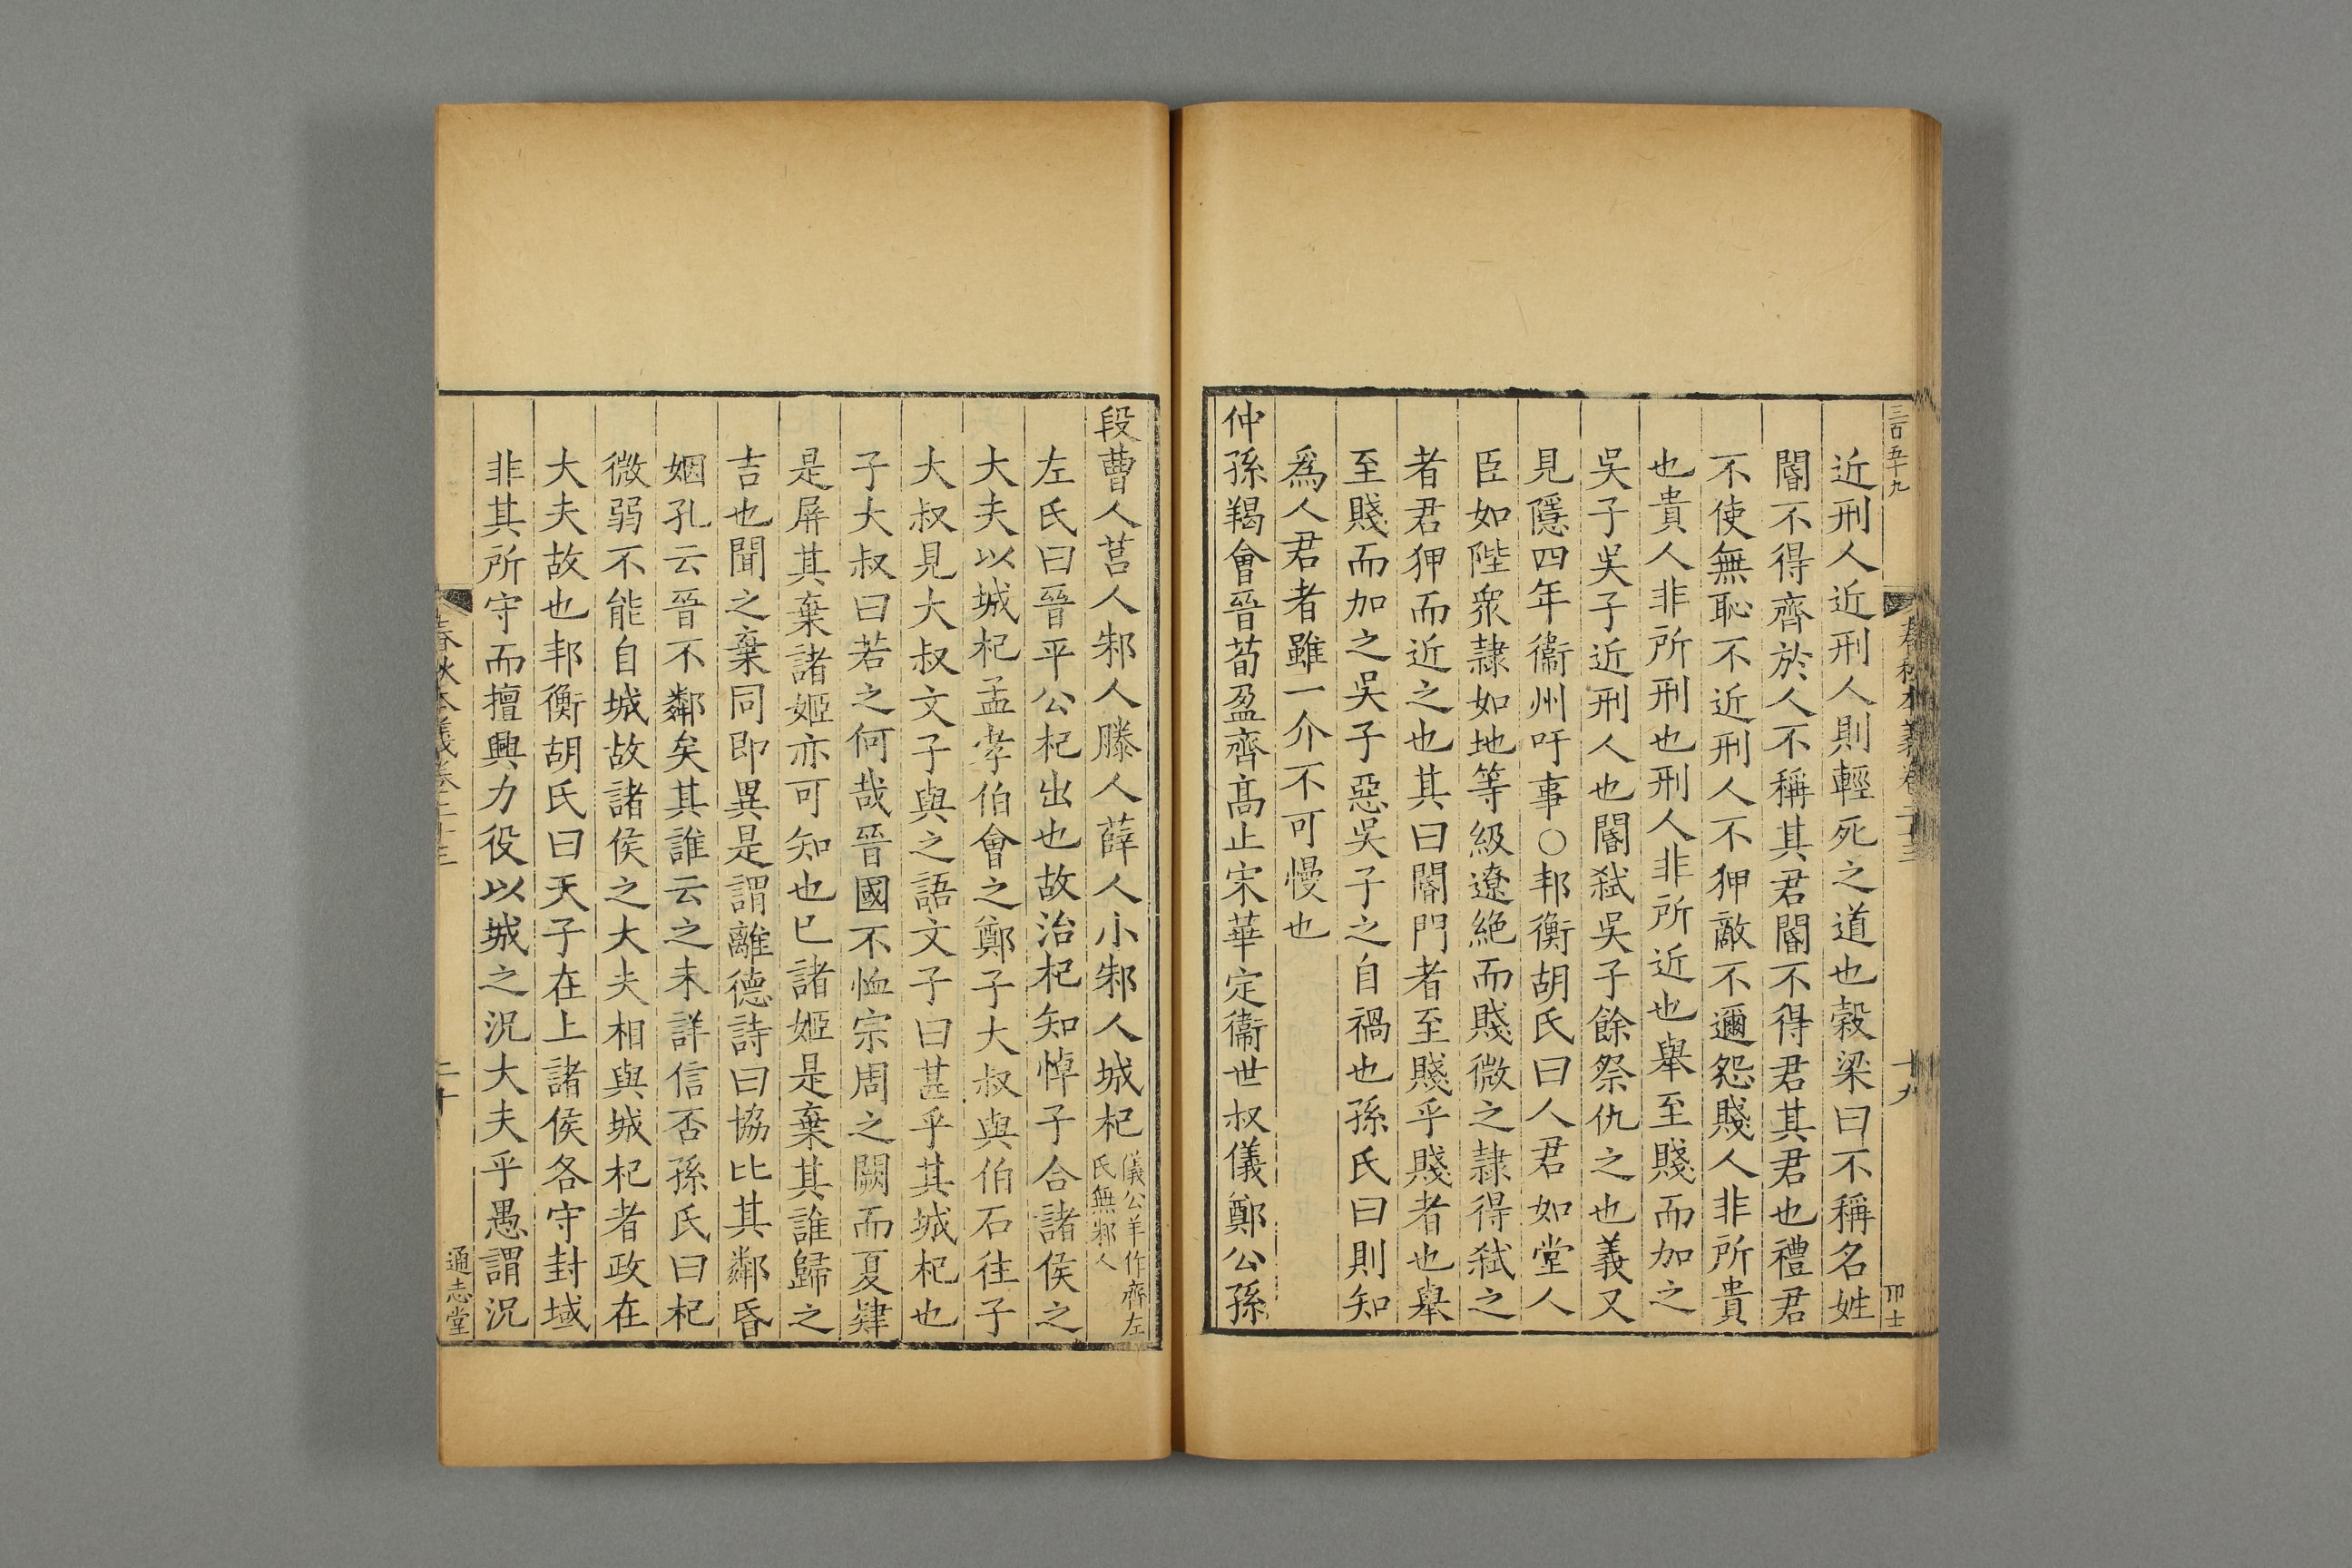 三百五十九
春秋本義卷二十三
十九
近刑人近刑人則輕死之道也穀梁曰不稱名姓
閽不得齊於人不稱其君閽不得君其君也禮君
不使無恥不近刑人不狎敵不邇怨賤人非所貴
也貴人非所刑也刑人非所近也舉至賤而加之
吳子吳子近刑人也閽弑吳子餘祭仇之也義又
見隱四年衞州吁事○邦衡胡氏曰人君如堂人
臣如陛衆隷如地等級遼絶而賤微之隷得弑之
者君狎而近之也其曰閽門者至賤乎賤者也舉
至賤而加之吳子惡吳子之自禍也孫氏曰則知
爲人君者雖一介不可慢也
仲孫羯會晉荀盈齊高止宋華定衞世叔儀鄭公孫
段曹人莒人邾人滕人薛人小邾人城杞
儀公羊作齊左
氏無邾人
左氏曰晉平公杞出也故治杞知悼子合諸侯之
大夫以城杞孟孝伯會之鄭子大叔與伯石往子
大叔見大叔文子與之語文子曰甚乎其城杞也
子大叔曰若之何哉晉國不恤宗周之闕而夏肄
是屏其棄諸姬亦可知也已諸姬是棄其誰歸之
吉也聞之棄同即異是謂離德詩曰協比其鄰昏
姻孔云晉不鄰矣其誰云之未詳信否孫氏曰杞
微弱不能自城故諸侯之大夫相與城杞者政在
大夫故也邦衡胡氏曰天子在上諸侯各守封域
非其所守而擅興力役以城之況大夫乎愚謂況
春秋本義卷二十三
二十
通志堂